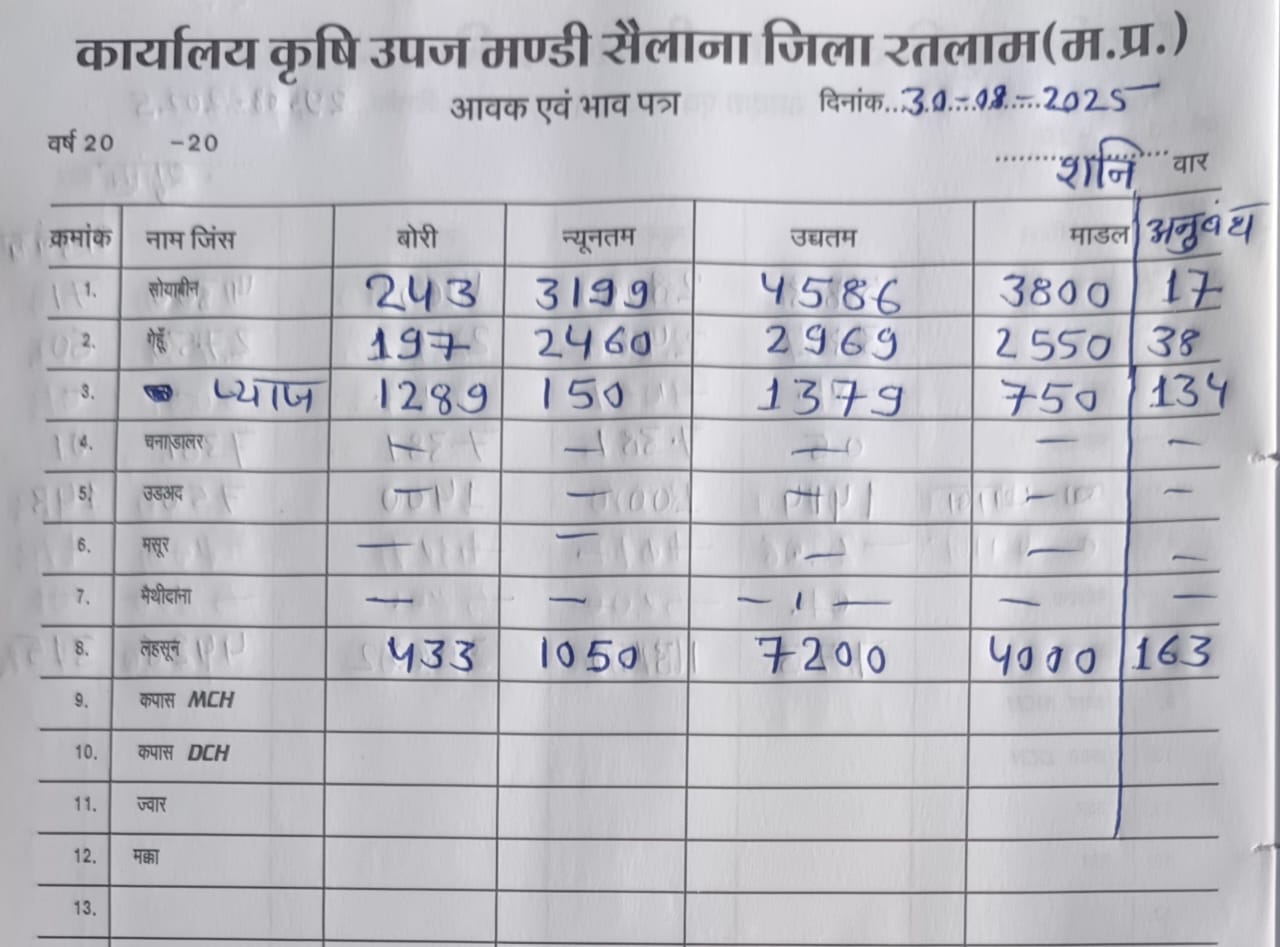 कार्यालय कृषि उपज मण्डी सैलाना जिला रतलाम(म.प्र.)
आवक एवं भाव पत्र दिनांक...30-08-2025
वर्ष 20 -20
शनि वार
क्रमांक नाम जिंस बोरी न्यूनतम उच्चतम माडल अनुबंध
1. सोयाबीन 243 3199 4586 3800 17
2. गेहूँ 197 2460 2969 2550 38
3. प्याज 1289 150 1379 750 134
4. चनाडालर — — — — —
5. उडअद — — — — —
6. मसूर — — — — —
7. मैथीदाना — — — — —
8. लहसून 433 1050 7200 4000 163
9. कपास MCH
10. कपास DCH
11. ज्वार
12. मक्का
13.